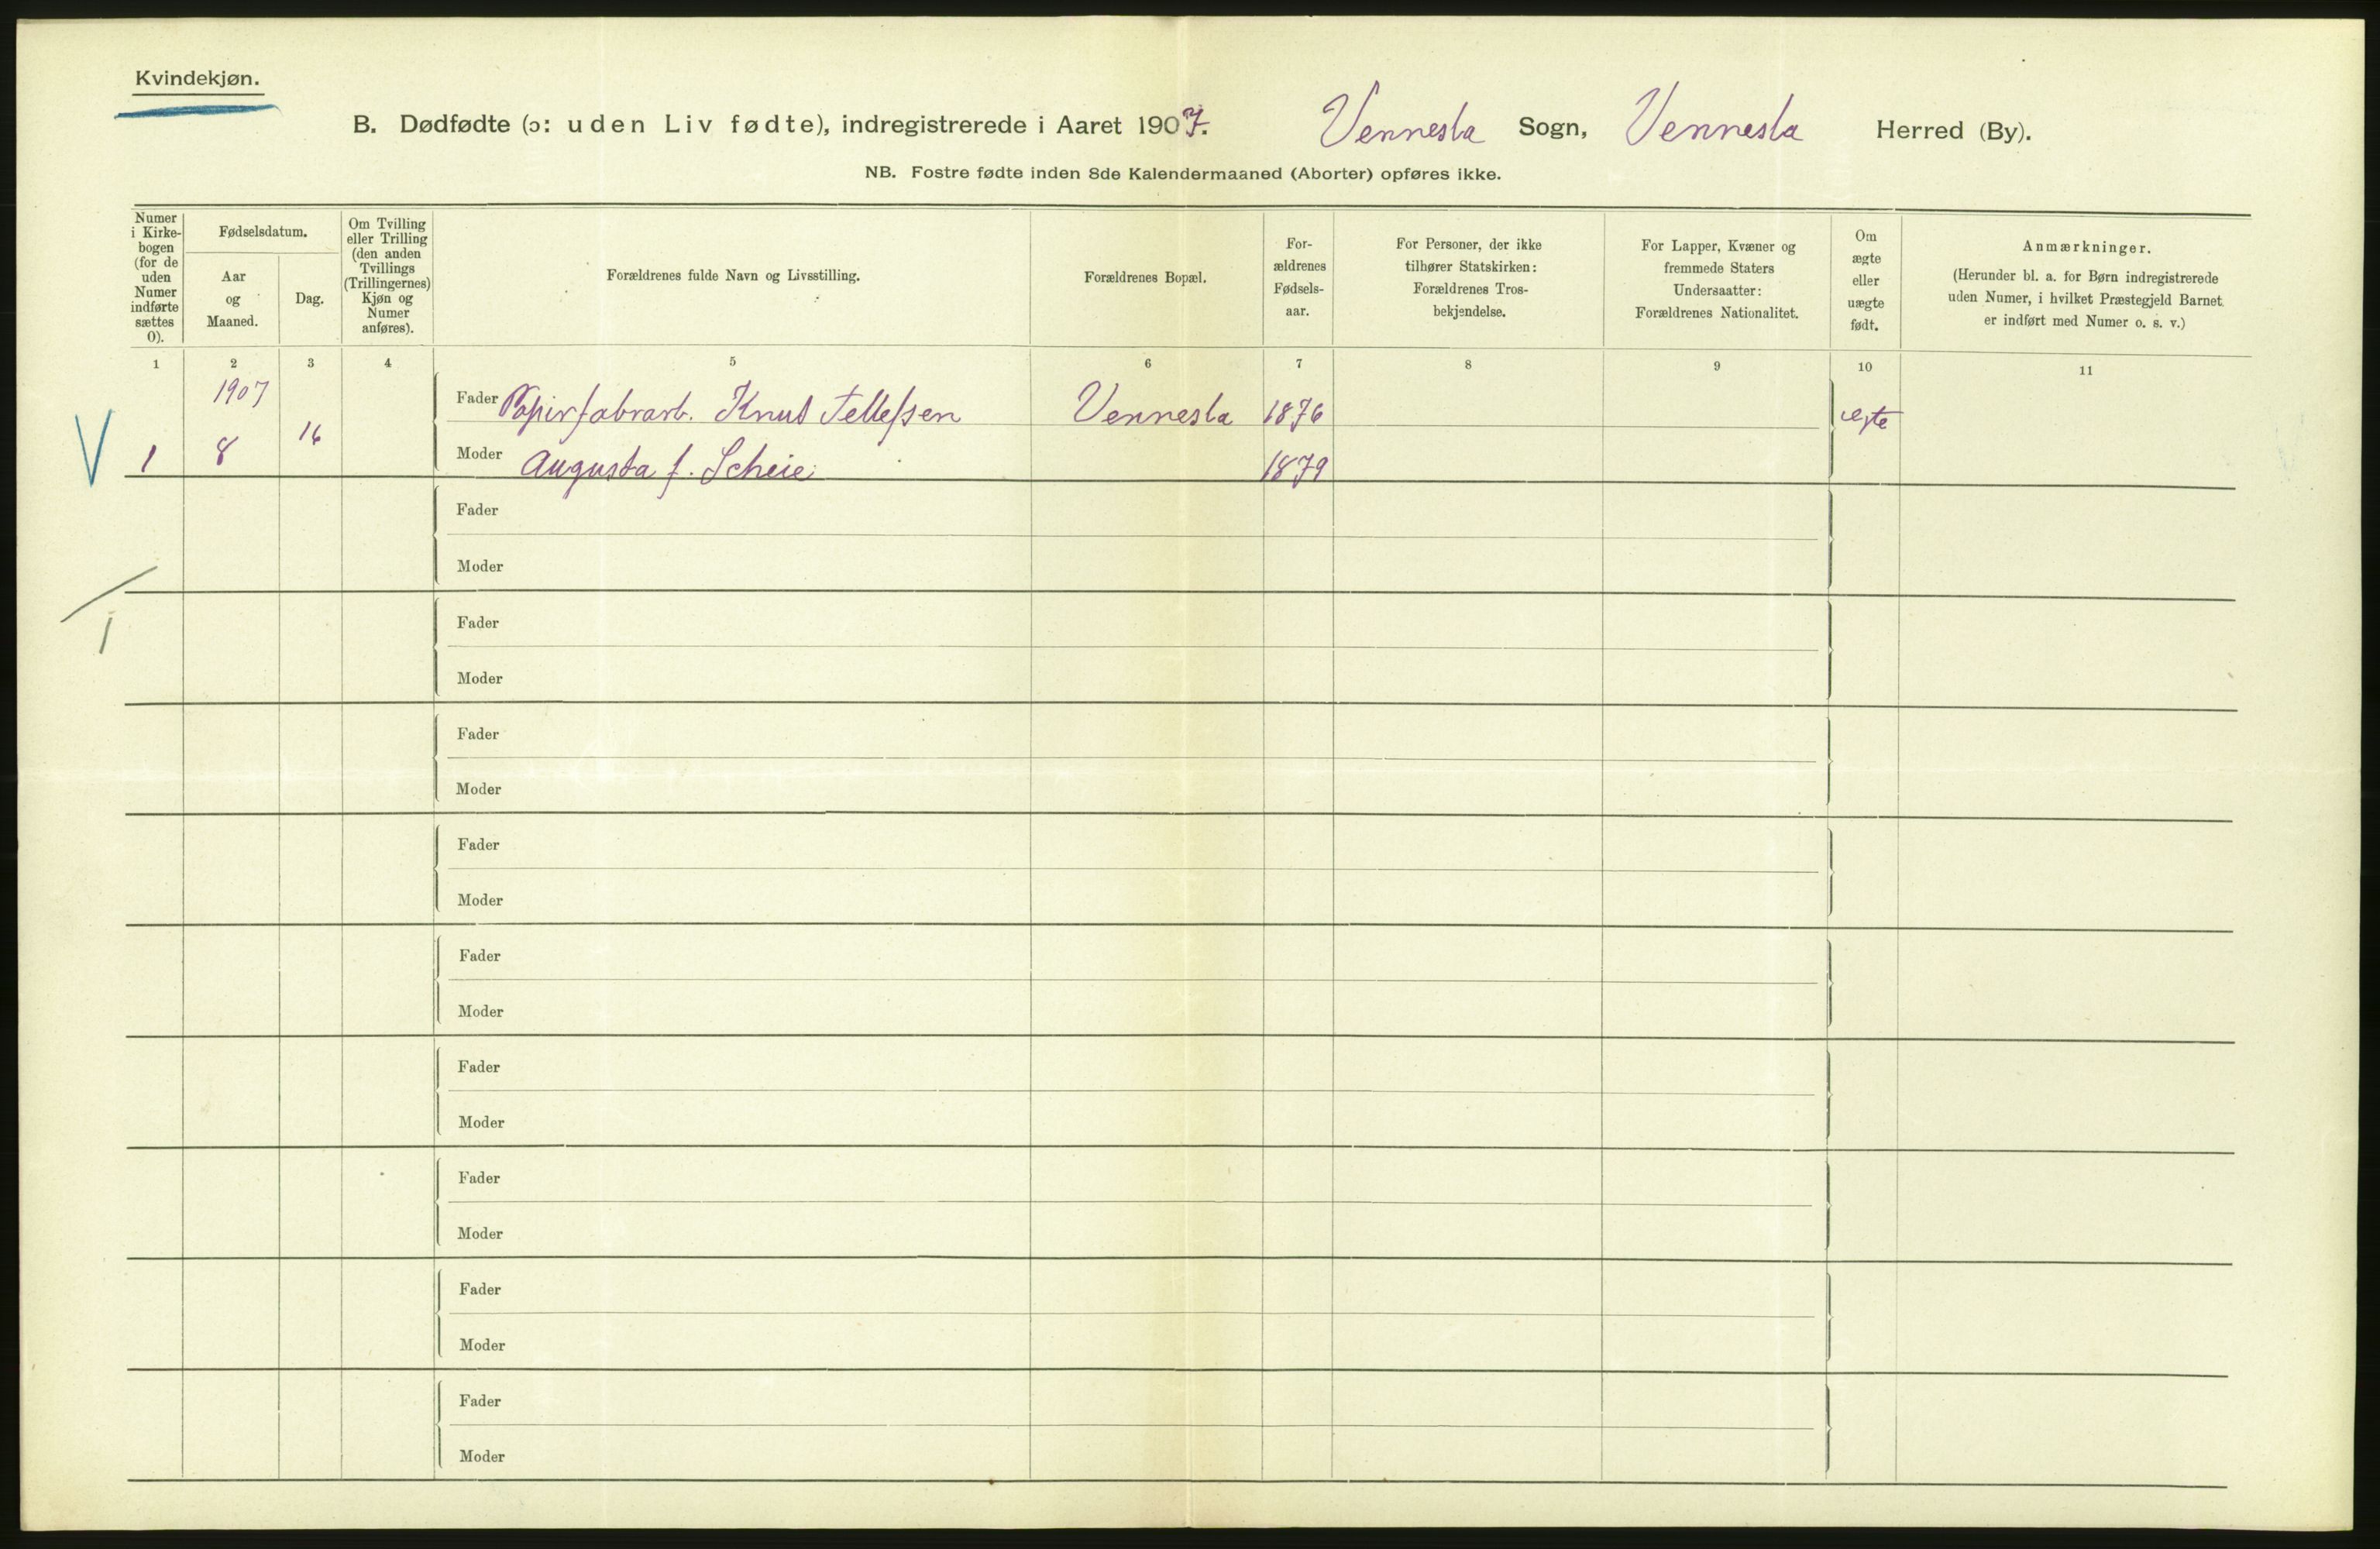 Kvindekjøn.
B. Dødfødte (ɔ: uden Liv fødte), indregistrerede i Aaret 1907. Vennesla Sogn, Vennesla Herred (By).
NB. Fostre fødte inden 8de Kalendermaaned (Aborter) opføres ikke.
Numer
i Kirke-
bogen
(for de
uden
Numer
indførte
sættes
0).
Fødselsdatum.
Aar
og
Maaned.
Dag.
Om Tvilling
eller Trilling
(den anden
Tvillings
(Trillingernes)
Kjøn og
Numer
anføres).
Forældrenes fulde Navn og Livsstilling.
Forældrenes Bopæl.
For-
ældrenes
Fødsels-
aar.
For Personer, der ikke
tilhører Statskirken:
Forældrenes Tros-
bekjendelse.
For Lapper, Kvæner og
fremmede Staters
Undersaatter:
Forældrenes Nationalitet.
Om
ægte
eller
uægte
født.
Anmærkninger.
(Herunder bl. a. for Børn indregistrerede
uden Numer, i hvilket Præstegjeld Barnet
er indført med Numer o. s. v.)
1 2 3 4 5 6 7 8 9 10 11
1907
Fader Papirfabrarb. Knut Tellefsen Vennesla 1876 ægte
V 1 8 16
Moder Augusta f. Scheie 1879
Fader
Moder
1
Fader
Moder
Fader
Moder
Fader
Moder
Fader
Moder
Fader
Moder
Fader
Moder
Fader
Moder
Fader
Moder